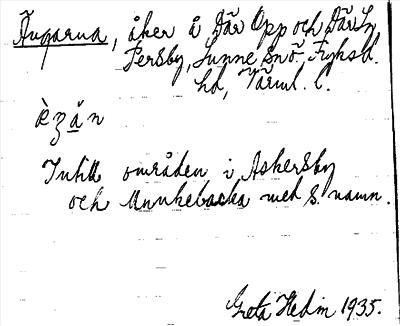 Ängarna, åker å Där Opp och Där I,
Persby, Sunne sn ö. Fryksd.
hd, Värml. l.
èŋa̲n
Inhk områden i Askersby
och Munkebacka med s. namn.
Greta Hedin 1935.